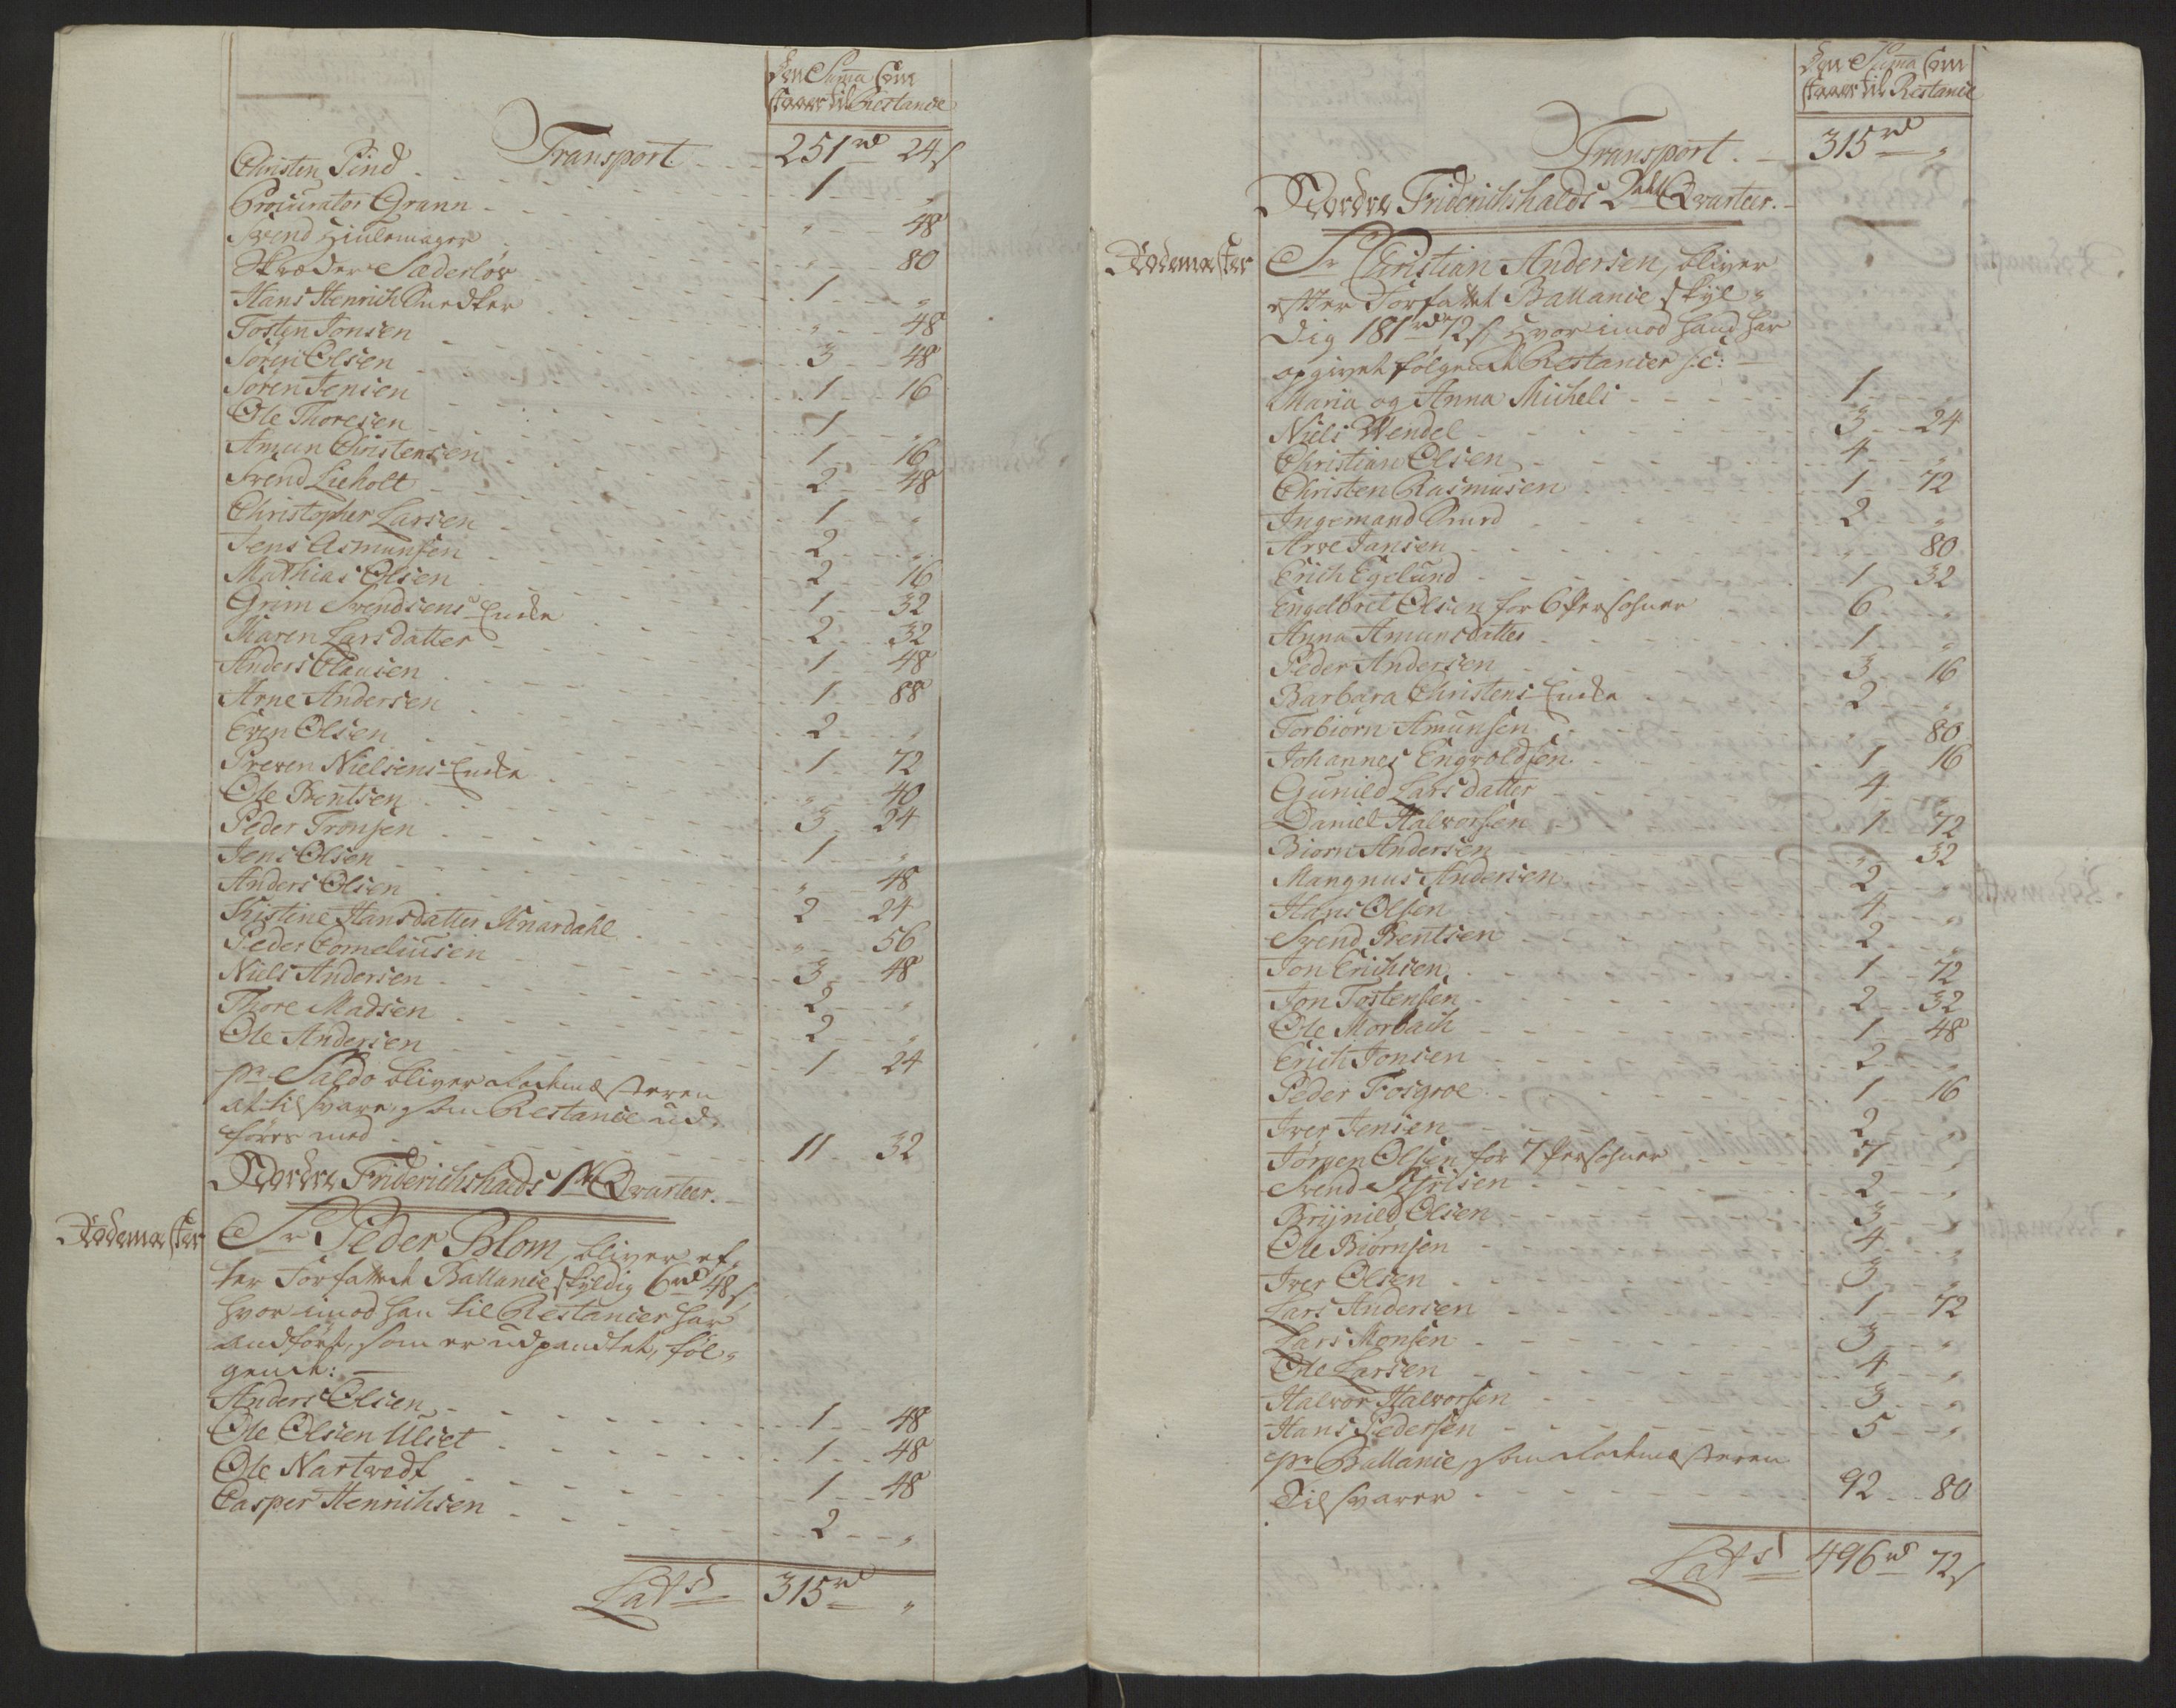 Den Suma som
staaer til Restance
Transport 251 rd 24 s
Christen Pind 1 "
Procurator Grann " 48
Svend Hiulemager " 80
Skræder Sæderløv 1 "
Hans Henrich Snedker " 48
Tosten Jonsen 3 48
Søren Olsen 1 16
Søren Jensen 1 "
Ole Thoresen 1 16
Amun Christensen 2 48
Svend Lieholt 1 "
Christopher Larsen 2 "
Jens Asmunsen 2 16
Mathias Olsen 1 32
Grim Svendsens Encke 2 32
Karen Larsdatter 1 48
Anders Clausen 1 88
Arne Andersen 2 "
Even Olsen 1 72
Preven Nielsens Encke " 40
Ole Bentsen 3 24
Peder Tronsen 1 "
Jens Olsen " 48
Anders Olsen 2 24
Kistine Hansdatter Knardahl " 56
Peder Corneliusen 3 48
Niels Andersen 2 "
Thore Madsen 2 "
Ole Andersen 1 24
pr Saldo bliver Rodemesteren
at tilsvare, som Restance ud-
føres med 11 32
Nordre Friderichshalds 1ste Qvarteer.
Rodemester Sr Peder Blom, bliver ef-
ter Forfattede Ballance skyldig 6 rd 48 s
hvorimod han til Restancer har
andført, som er udpandtet, føl-
gende:
Anders Olsen 1 48
Ole Olsen Ulset 1 48
Ole Nartvedt 1 48
Casper Henrichsen 2 "
Lats 315 rd "
Den Suma som
staaer til Restance
Transport 315 rd "
Nordre Friderichshalds 2det Qvarteer.
Rodemester Sr Christian Andersen, bliver
efter Forfattet Ballance skyl-
dig 181 rd 72 s, hvorimod hand har
opgivet følgende Restancer s: c:
Maria og Anna Michels 1 "
Niels Wendel 3 24
Christian Olsen 4 "
Christen Rasmusen 1 72
Ingemand Smed 2 "
Arve Jansen " 80
Erich Egelund 1 32
Engelbret Olsen for 6 Persohner 6 "
Anna Amunsdatter 1 "
Peder Andersen 3 16
Barbara Christens Encke 2 "
Torbiørn Amunsen " 80
Johannes Engvoldsen 1 16
Gunild Larsdatter 4 "
Daniel Halvorsen 1 72
Biørn Andersen " 32
Mangnus Andersen 2 "
Hans Olsen 4 "
Svend Bentsen 2 "
Jon Erichsen 1 72
Jon Tostensen 2 32
Ole Morbach 1 48
Erich Jonsen 2 "
Peder Fosgroe 1 16
Iver Jensen 2 "
Jørgen Olsen for 7 Persohner 7 "
Svend 2 "
Brynild Olsen 3 "
Ole Biørnsen 4 "
Iver Olsen 3 "
Lars Andersen 1 72
Lars Monsen 3 "
Ole Larsen 4 "
Halvor Halvorsen 3 "
Hans Pedersen 5 "
pr Ballance, som Rodemesteren
Tilsvarer 92 80
Lats 496 rd 72 s